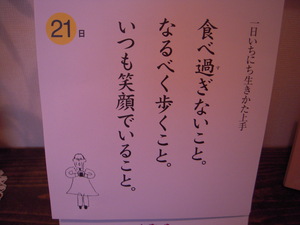 21日
一日いちにち生きかた上手
食べ過ぎないこと。
なるべく歩くこと。
いつも笑顔でいること。